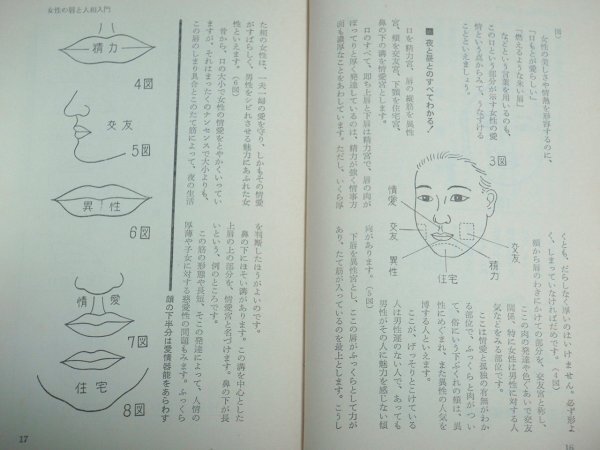 図)
女性の美しさや情熱を形容するのに、
「口もとが愛らしい」
「燃えるような朱い唇」
などという言葉を用いるのも、
この口という部分が示す女性の愛
情という点からみて、うなずける
ことといえましょう。
夜と昼とのすべてわかる!
口を精力宮、唇の縦筋を異性
宮、頬を交友宮、下顎を住宅宮、
鼻の下の溝を情愛宮とします。
口のすべて、即ち上唇と下唇は精力宮で、唇の肉が
ぽってりと厚く発達しているのは、精力が強く情事方
面も濃厚なことをあわしています。ただし、いくら厚
3図
情愛
交友
異性
住宅
精力
交友
くとも、だらしなく厚いのはいけません。必ず形よ
く、しまっていなければだめです。(4図)
頬から唇のわきにかけての部分を、交友宮と称し、
この肉の発達や色ぐあいで交友
関係、特に女性は男性に対する人
気などをみる部位です。
ここは情愛と孤独の有無がわか
る部位で、ふっくらと肉がつい
て、俗にいう下ぶくれの頬は、異
性にめぐまれ、また異性の人気を
博する人といえます。
ここが、げっそりとこけている
人は男性運のない人で、あっても
男性がその人に魅力を感じない傾
向があります。(5図)
下唇を異性宮とし、ここの唇がふっくらとして力が
あり、たて筋が入っているのを最上とします。こうし
16
女性の唇と人相入門
た相の女性は、一夫一婦の愛を守り、しかもその情愛
がすばらしく、男性をシビれさせる魅力にあふれた女
性といえます。(6図)
昔から、口の大小で女性の情愛をとやかくいってい
ますが、それはまったくのナンセンスで大小よりも、
この唇のしまり具合とこのたて筋によって、夜の生活
を判断したほうがよいのです。
鼻の下にほそい溝があります。この溝を中心とした
上唇の上の部分を、情愛宮と名づけます。鼻の下が長
いという、例のところです。
この筋の形態や長短、そこの発達によって、人情の
厚薄や子女に対する慈愛性の問題もみます。ふっくら
顔の下半分は愛情器能をあらわす
精力
4図
交友
5図
異性
6図
情愛
7図
住宅
8図
17